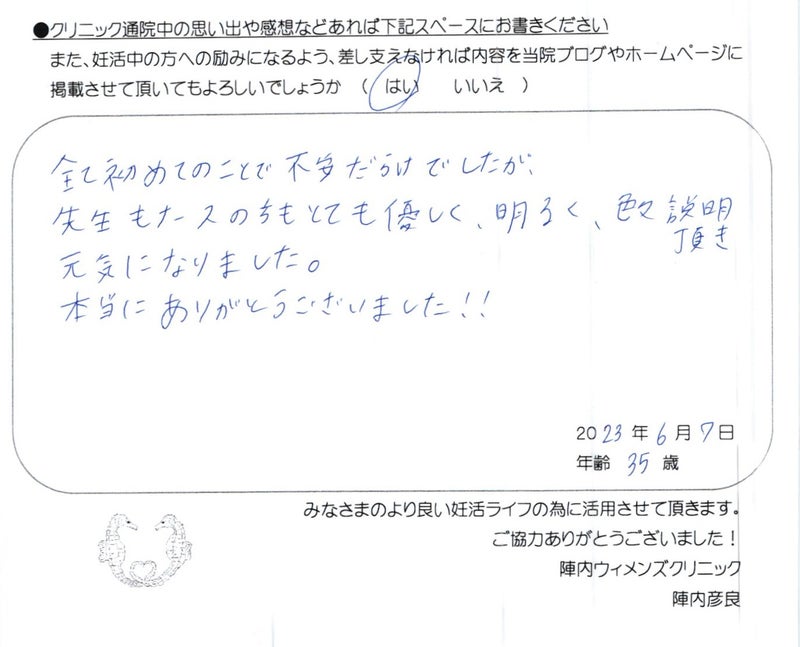 ●クリニック通院中の思い出や感想などあれば下記スペースにお書きください
また、妊活中の方への励みになるよう、差し支えなければ内容を当院ブログやホームページに
掲載させて頂いてもよろしいでしょうか （ はい いいえ ）
全て初めてのことで不安だらけでしたが、
先生もナースの方もとても優しく、明るく、色々説明
頂き
元気になりました。
本当にありがとうございました!!
2023年6月7日
年齢 35 歳
みなさまのより良い妊活ライフの為に活用させて頂きます。
ご協力ありがとうございました！
陣内ウィメンズクリニック
陣内彦良